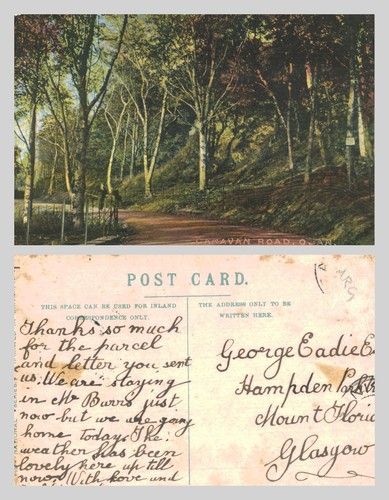 CARAVAN ROAD, OJAN.
POST CARD.
THIS SPACE CAN BE USED FOR INLAND
CORRESPONDENCE ONLY.
THE ADDRESS ONLY TO BE
WRITTEN HERE.
Thanks so much
for the parcel
and letter you sent
us. We are staying
in Mr Burrs just
now but we are going
home today. The
weather has been
lovely here up till
now. With love and
George Eadie E
Hampden
Mount Floria
Glasgow